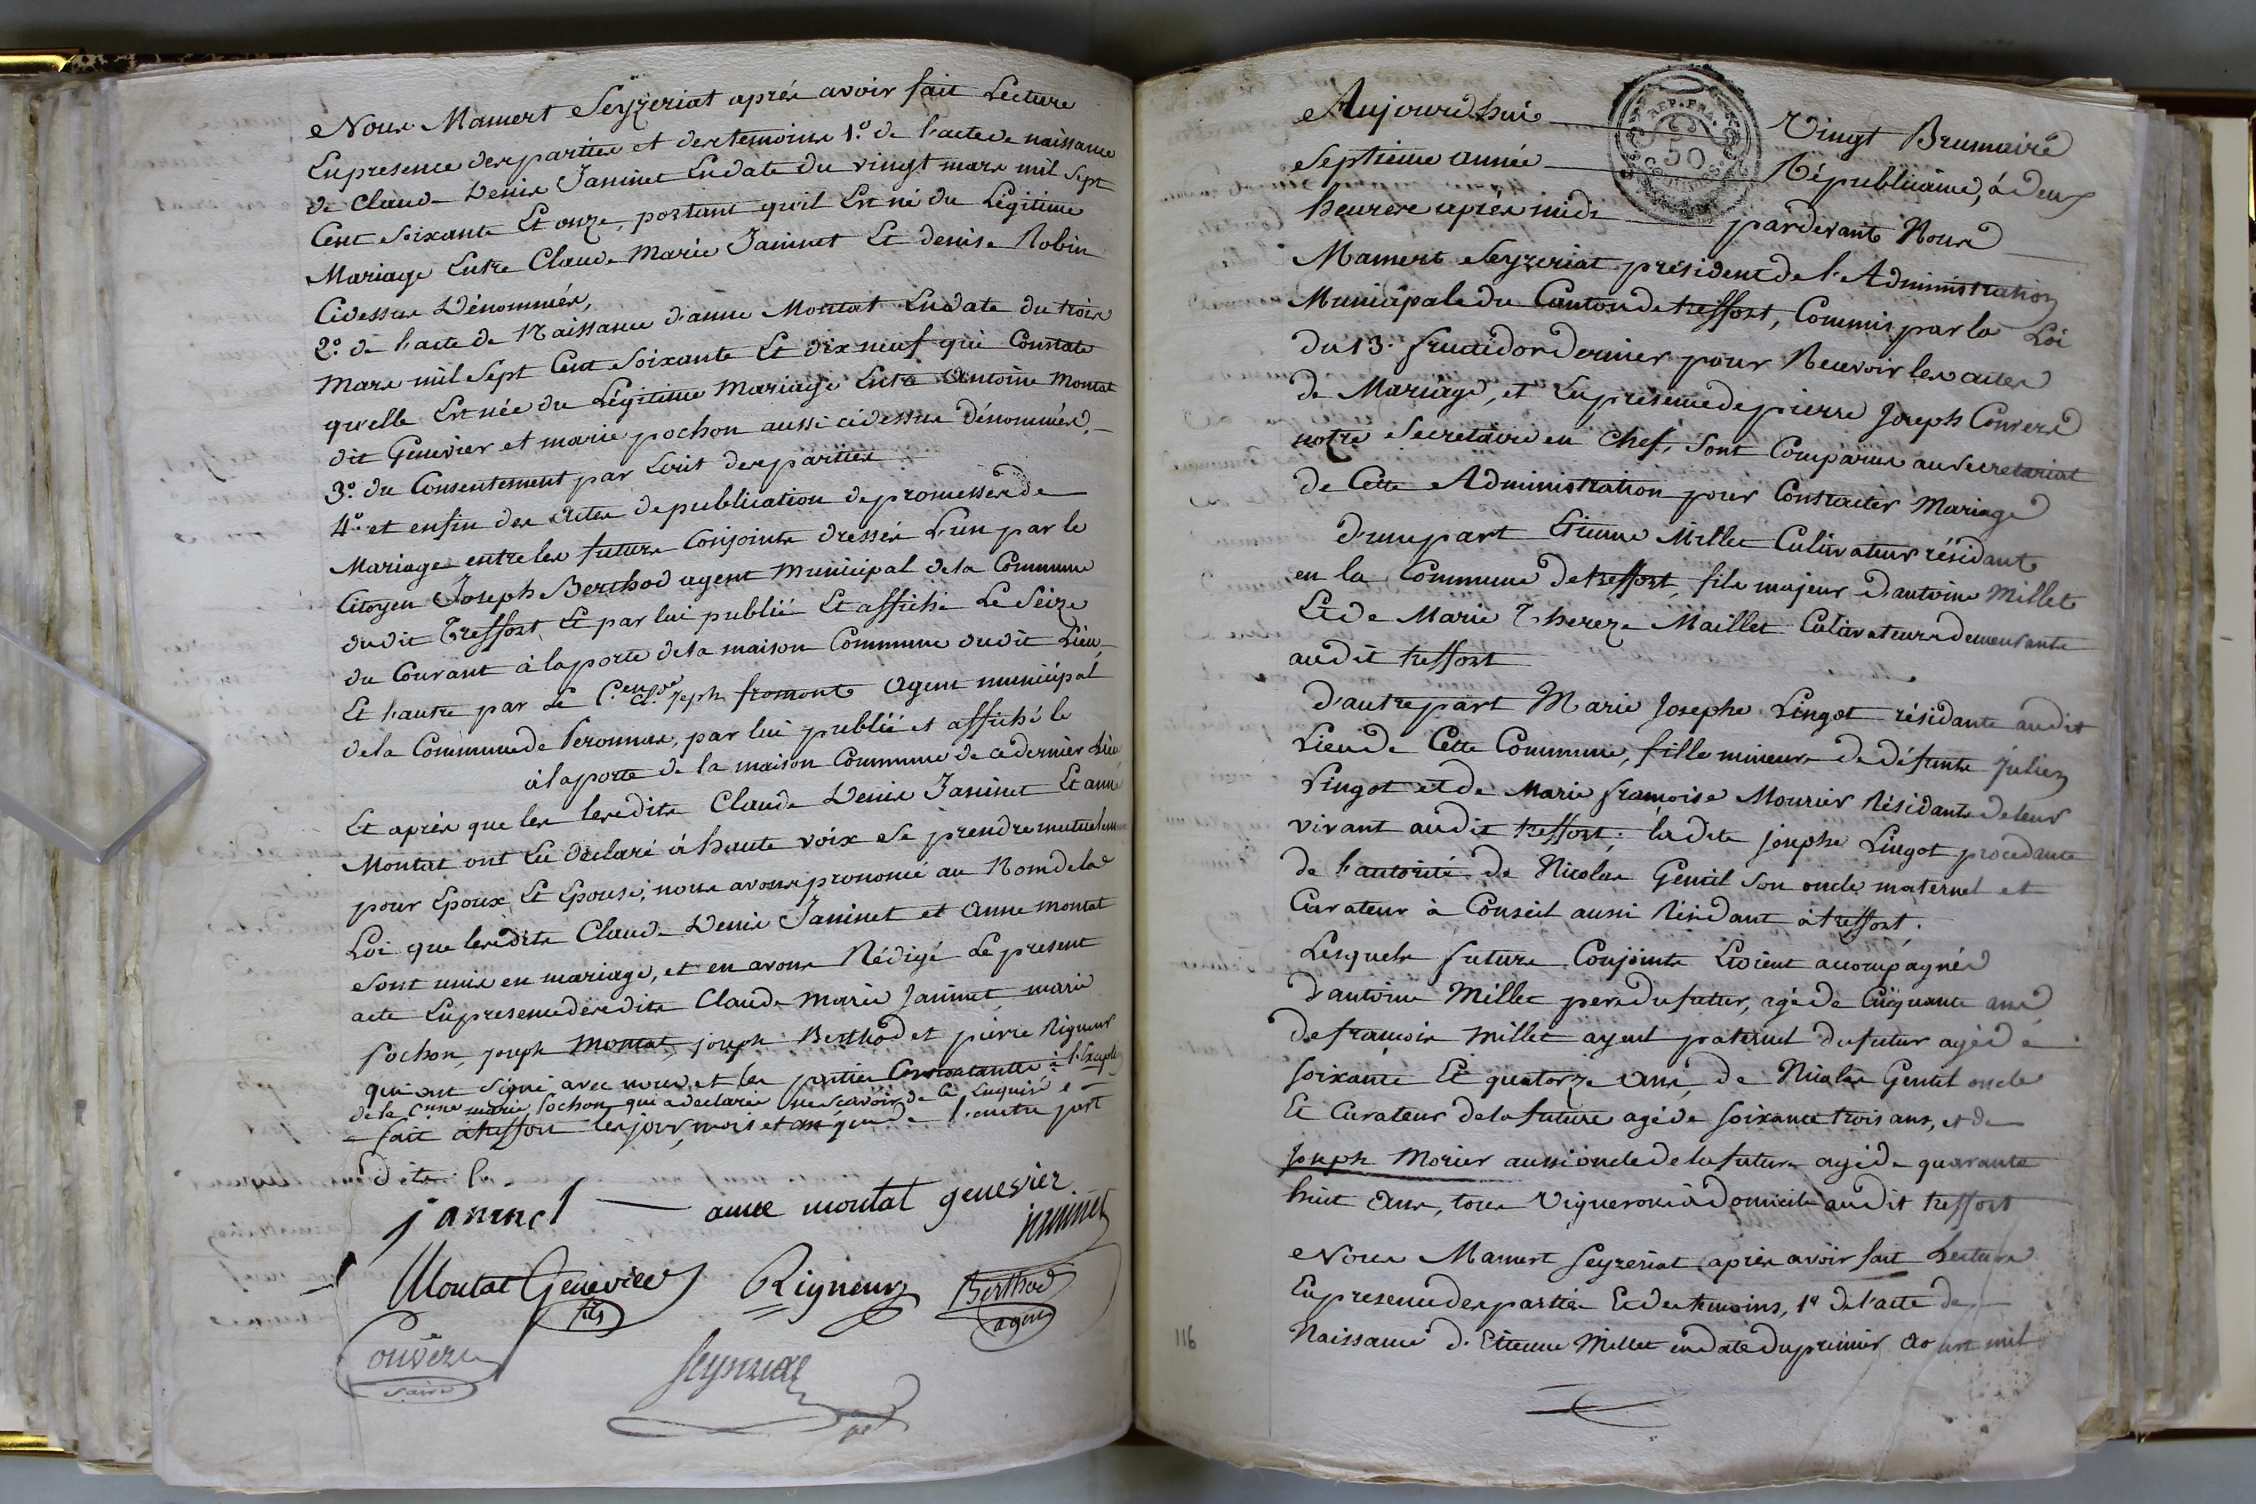 Nous Mamert Seyzeriat après avoir fait Lecture
En presence des parties et des temoins 1.° de l'acte de naissance
de Claude Denis Janinet En date du vingt mars mil Sept
Cent Soixante Et onze, portant qu'il Est né du Légitime
Mariage Entre Claude Marie Janinet Et denise Robin
Cidessus Dénommés,
2.° de l'acte de Naissance d'anne Montat En date du trois
Mars mil Sept Cent Soixante Et dix neuf qui Constate
qu'elle Est née du Légitime Mariage Entre Antoine Montat
dit Genevier et marie pochon aussi cidessus dénommés,
3.° du Consentement par Ecrit des parties
4.° et enfin des Actes de publication de promesses de
Mariage entre les futurs Conjoints dressés L'un par le
Citoyen Joseph Berthod agent Municipal de la Commune
dudit Treffort, Et par lui publié Et affiché Le Seize
du Courant à la porte de la maison Commune dudit Lieu,
Et l'autre par Le C.en Cl.de Jeph fromont Agent municipal
de la Commune de Peronnas, par lui publié et affiché le
à la porte de la maison Commune de ce dernier Lieu
Et après que les lesdits Claude Denis Janinet Et anne
Montat ont Eu déclaré à haute voix Se prendre mutuellement
pour Epoux Et Epouse, nous avons prononcé au Nom de la
Loi que lesdits Claude Denis Janinet et Anne Montat
Sont unis en mariage, et en avons Rédigé Le present
acte En presence desdits Claude Marie Janinet, marie
Pochon, joseph Montat, joseph Berthod et pierre Rigneur
qui ont Signé avec nous et les parties Contractantes à l'Exception
de la C.enne marie Pochon qui a declarée ne Scavoir de Ce Enquise
fait à treffort les jour, mois et an que de l'autre part
janinet anne montat genevier
janinet
Montat Genevier fils Rigneur Berthod
agent
Convers
Seyzeriat
Aujourd'hui Vingt Brumaire
REP. FRA.
50
Septieme année Républicaine, à deux
heures après midi pardevant Nous
Mamert Seyzeriat président de l'Administration
Municipale du Canton de treffort, Commis par la Loi
du 13. fructidor dernier pour Recevoir les actes
de Mariage, et En presence de pierre Joseph Convers
notre Secretaire en Chef, Sont Comparus au Secretariat
de Cette Administration pour Contracter Mariage
d'une part Etienne Millet Cultivateur résidant
en la Commune de treffort, fils majeur d'antoine Millet
Et de Marie Thereze Maillet Cultivateurs demeurants
audit treffort
d'autre part Marie Josephe Lingot résidante audit
Lieu de Cette Commune, fille mineure de défunts Julien
Lingot et de Marie françoise Mourier Résidants de leur
vivant audit treffort; ladite josephe Lingot procedante
de l'autorité de Nicolas Gentil Son oncle maternel et
Curateur à Conseil aussi Résidant à treffort.
Lesquels futurs Conjoints Etoient accompagnés
d'antoine Millet pere du futur, agé de Cinquante ans
de françois Millet ayeul paternel du futur agé de
Soixante Et quatorze ans, de Nicolas Gentil oncle
Et Curateur de la future agé de Soixante trois ans, et de
Joseph Morier aussi oncle de la future agé de quarante
huit Ans, tous Vignerons à domicile audit treffort
Nous Mamert Seyzeriat après avoir fait Lecture
En presence des parties Et des temoins, 1.° de l'acte de
Naissance d'Etienne Millet en date du premier Aoust mil
116